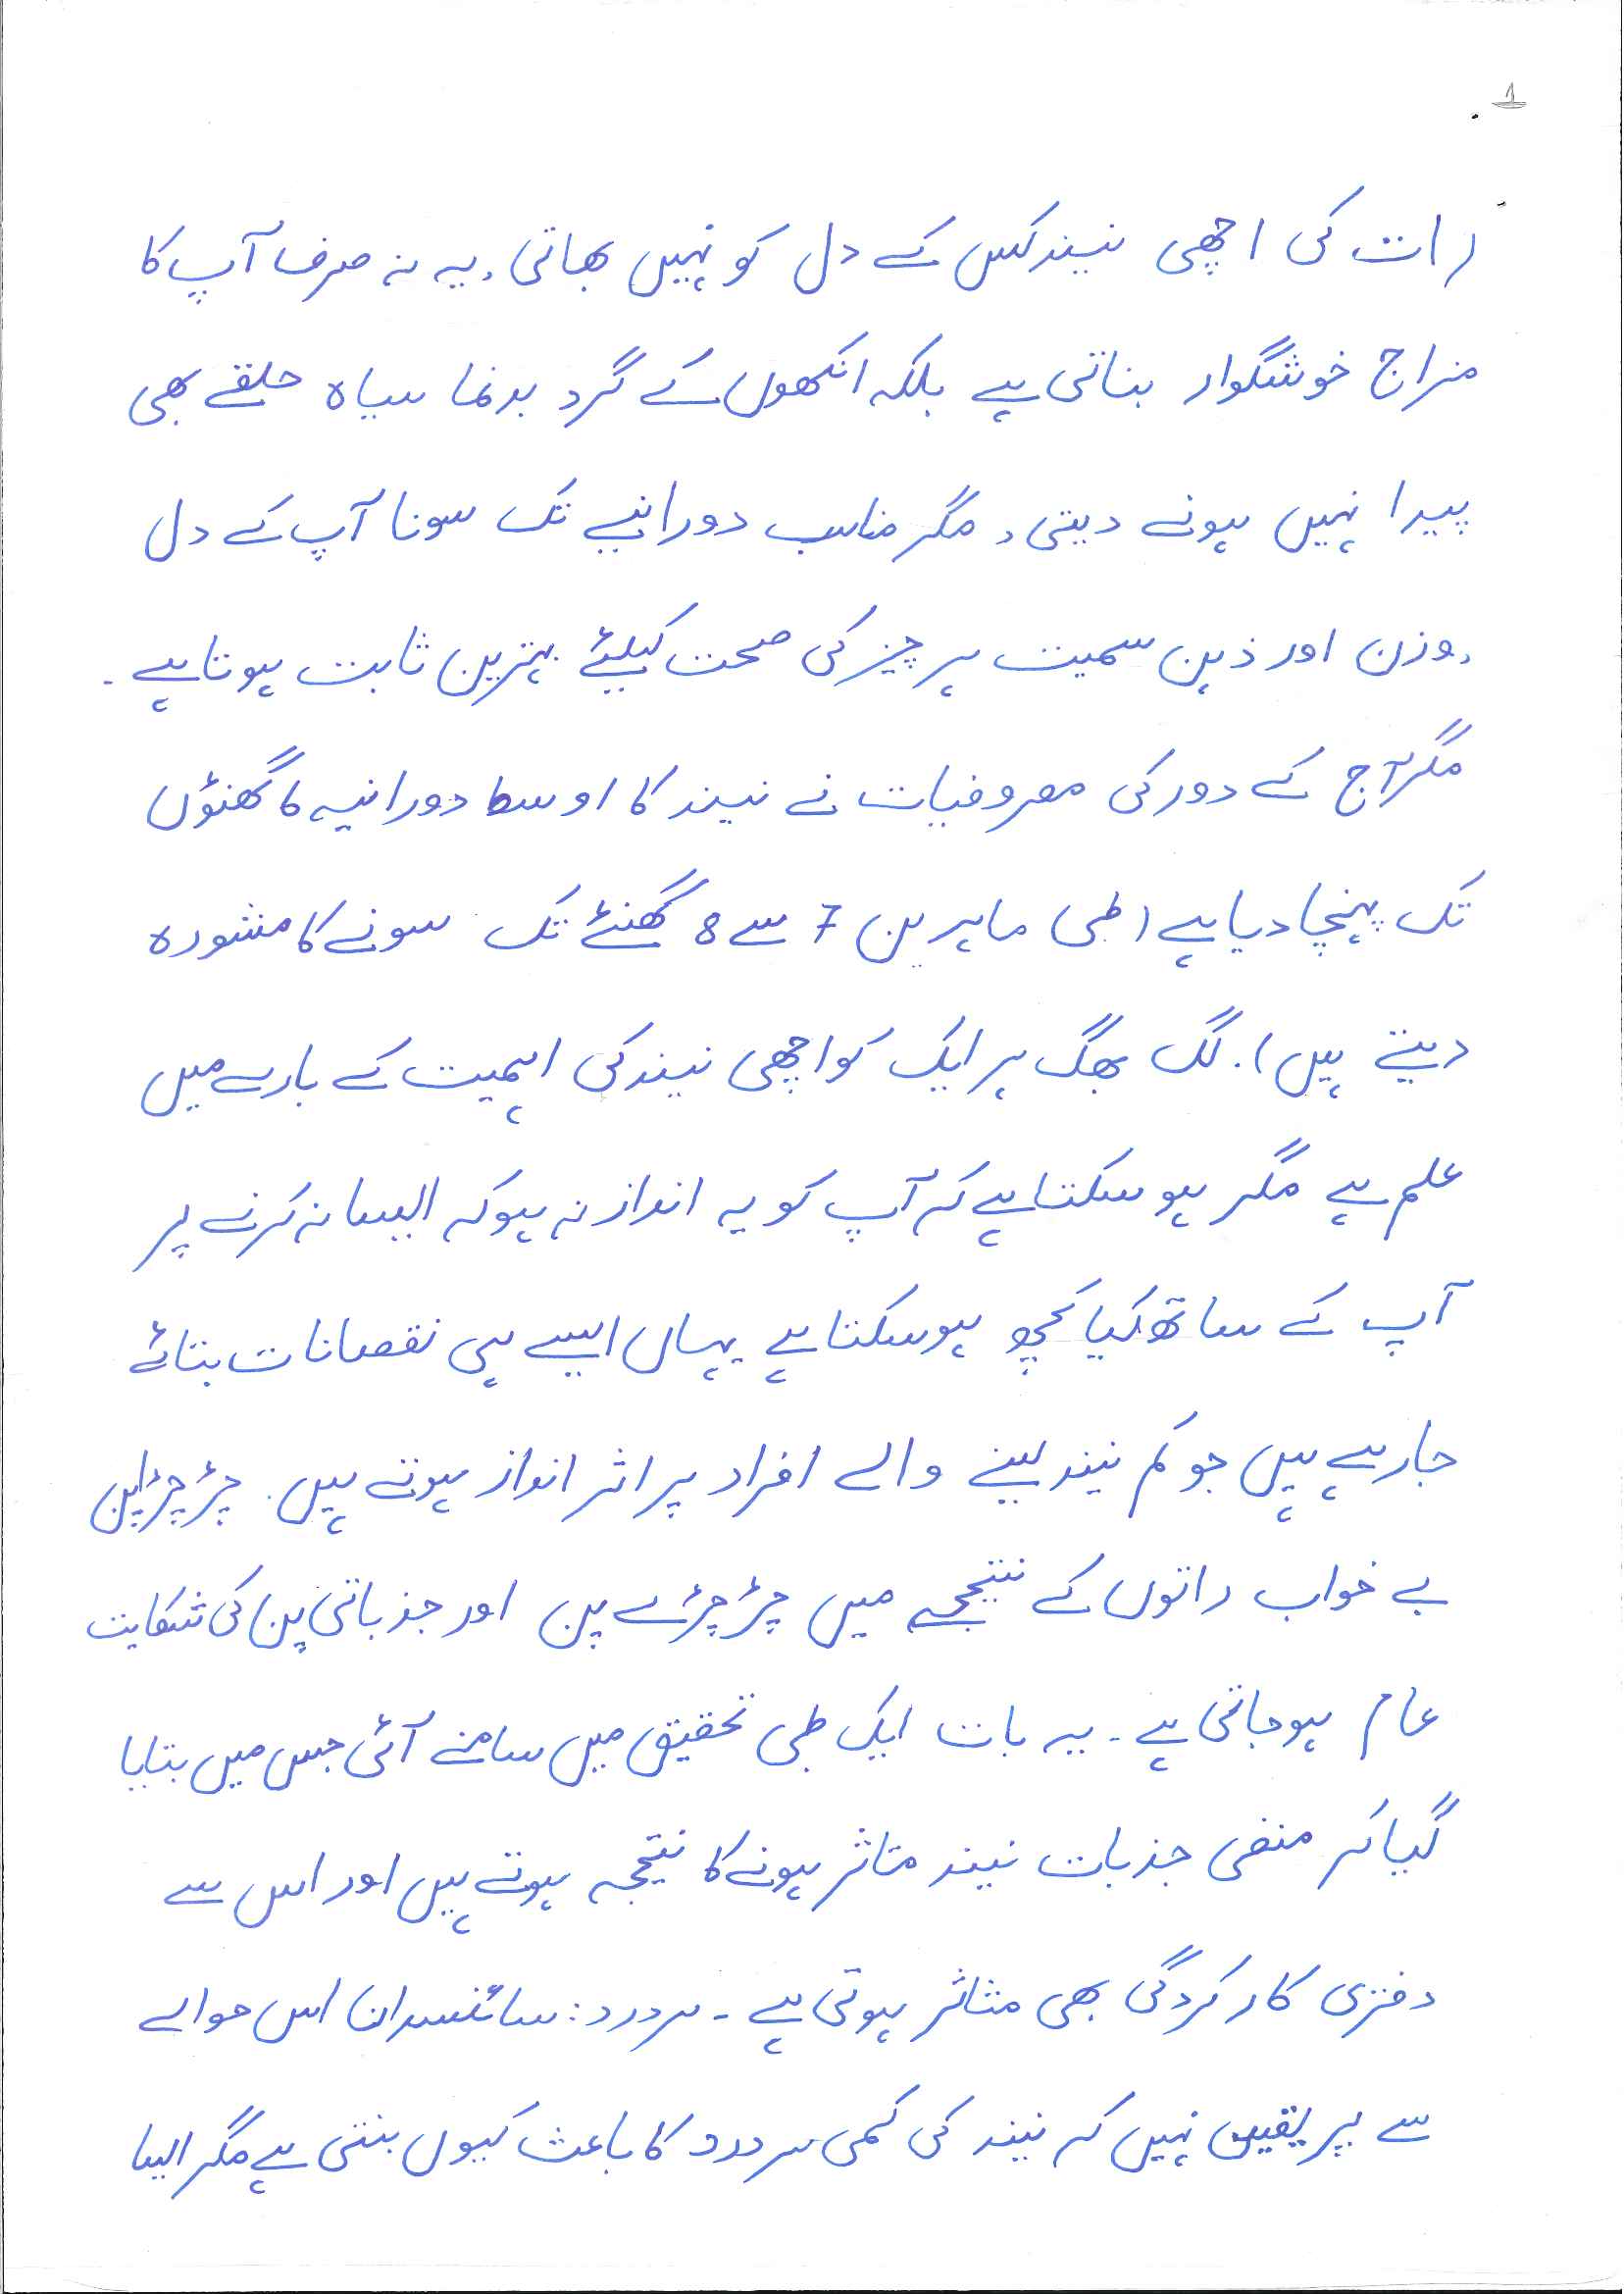 رات کی اچھی نیند کس کے دل کو نہیں بھاتی، یہ نہ صرف آپ کا
مزاج خوشگوار بناتی ہے بلکہ انکھوں کے گرد بدنما سیاہ حلقے بھی
پیدا نہیں ہونے دیتی، مگر مناسب دورانیے تک سونا آپ کے دل
،وزن اور ذہن سمیت ہر چیز کی صحت کیلئے بہترین ثابت ہوتا ہے۔
مگر آج کے دور کی مصروفیات نے نیند کا اوسط دورانیہ 6 گھنٹوں
تک پہنچا دیا ہے (طبی ماہرین 7 سے 8 گھنٹے تک سونے کا مشورہ
دیتے ہیں)۔ لگ بھگ ہر ایک کو اچھی نیند کی اہمیت کے بارے میں
علم ہے مگر ہو سکتا ہے کہ آپ کو یہ انداز نہ ہو کہ ایسا نہ کرنے پر
آپ کے ساتھ کیا کچھ ہو سکتا ہے یہاں ایسے ہی نقصانات بتائے
جا رہے ہیں جو کم نیند لینے والے افراد پر اثر انداز ہوتے ہیں۔ چڑچڑاپن
بے خواب راتوں کے نتیجے میں چڑچڑے پن اور جذباتی پن کی شکایت
عام ہو جاتی ہے۔ یہ بات ایک طبی تحقیق میں سامنے آئی جس میں بتایا
گیا کہ منفی جذبات نیند متاثر ہونے کا نتیجہ ہوتے ہیں اور اس سے
دفتری کارکردگی بھی متاثر ہوتی ہے۔ سردرد: سائنسدان اس حوالے
سے پر یقین نہیں کہ نیند کی کمی سردرد کا باعث کیوں بنتی ہے مگر ایسا